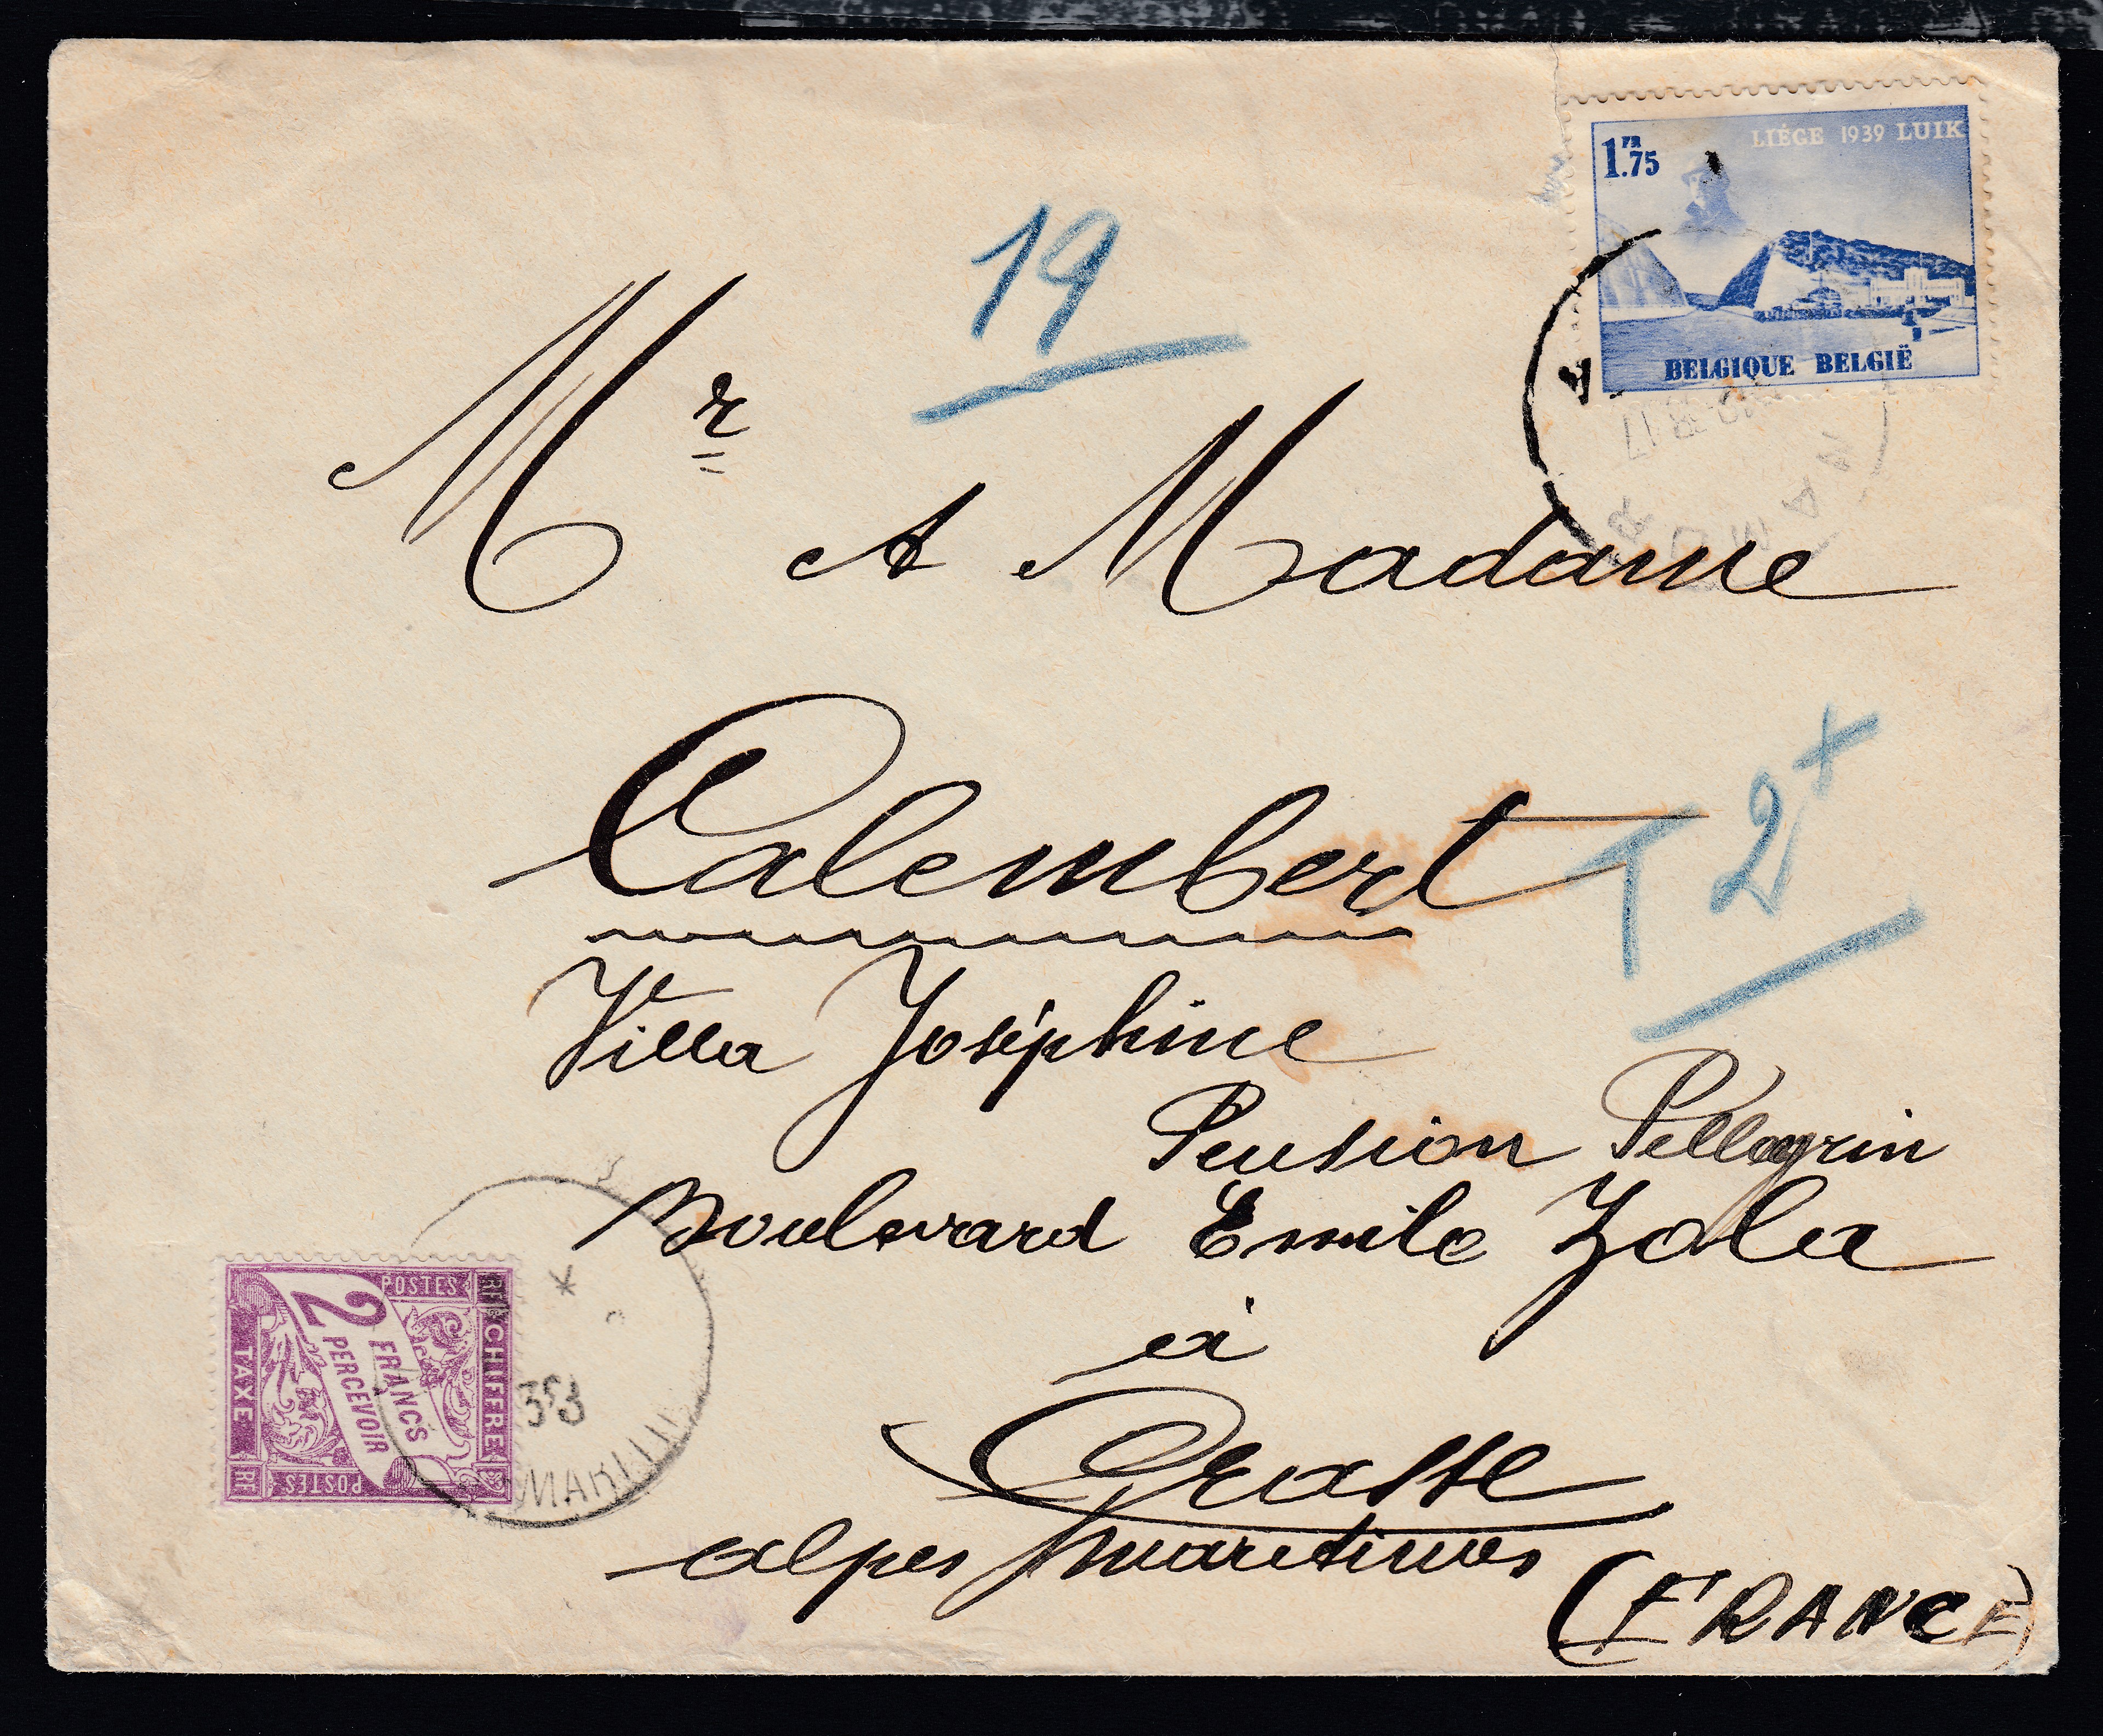 LIÉGE 1939 LUIK
1FR.75
BELGIQUE BELGIË
19
Mr
et Madame
Calembert
T 2+
Villa Joséphine
Pension Pellegrin
Boulevard Emile Zola
à
Grasse
alpes maritimes
(FRANCE)
POSTES
CHIFFRE
2 FRANCS
PERCEVOIR
TAXE
POSTES